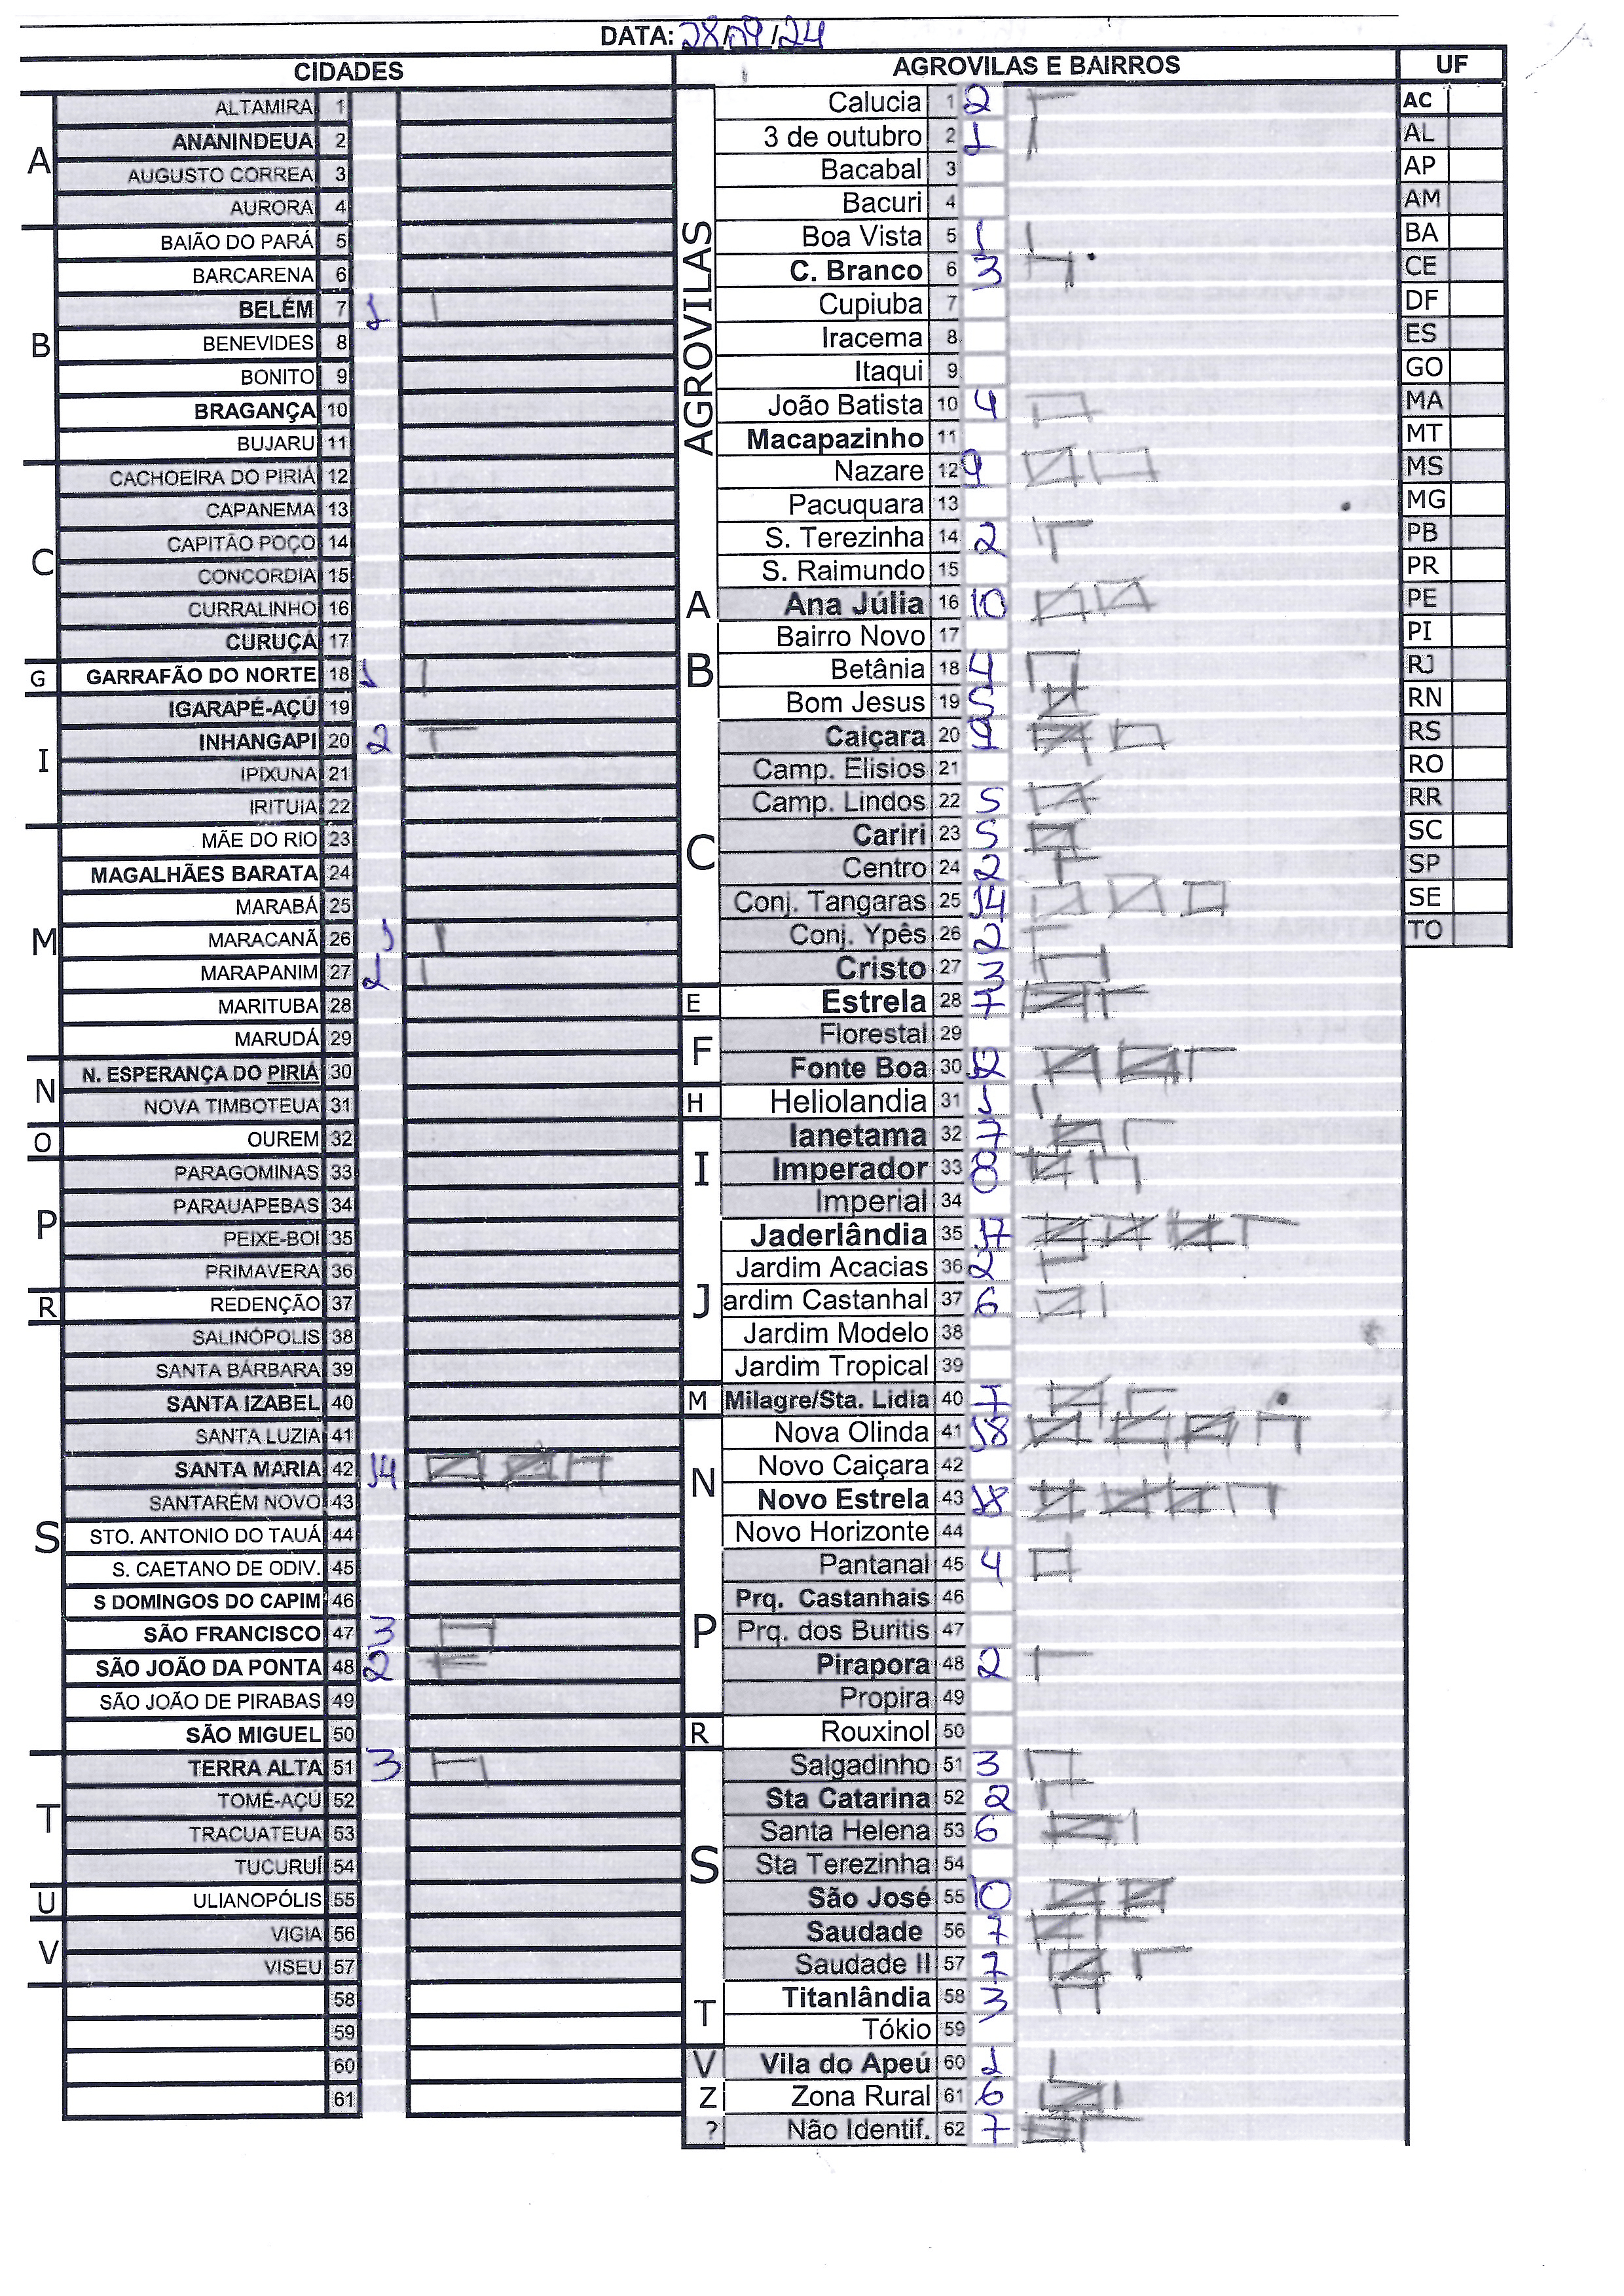 DATA: 28/09/24
CIDADES
A
ALTAMIRA 1
ANANINDEUA 2
AUGUSTO CORREA 3
AURORA 4
B
BAIÃO DO PARÁ 5
BARCARENA 6
BELÉM 7 1
BENEVIDES 8
BONITO 9
BRAGANÇA 10
BUJARU 11
C
CACHOEIRA DO PIRIÁ 12
CAPANEMA 13
CAPITÃO POÇO 14
CONCORDIA 15
CURRALINHO 16
CURUÇÁ 17
G
GARRAFÃO DO NORTE 18 1
I
IGARAPÉ-AÇÚ 19
INHANGAPI 20 2
IPIXUNA 21
IRITUIA 22
M
MÃE DO RIO 23
MAGALHÃES BARATA 24
MARABÁ 25
MARACANÃ 26 1
MARAPANIM 27 1
MARITUBA 28
MARUDÁ 29
N
N. ESPERANÇA DO PIRIÁ 30
NOVA TIMBOTEUA 31
O
OUREM 32
P
PARAGOMINAS 33
PARAUAPEBAS 34
PEIXE-BOI 35
PRIMAVERA 36
R
REDENÇÃO 37
S
SALINÓPOLIS 38
SANTA BÁRBARA 39
SANTA IZABEL 40
SANTA LUZIA 41
SANTA MARIA 42 14
SANTARÉM NOVO 43
STO. ANTONIO DO TAUÁ 44
S. CAETANO DE ODIV. 45
S DOMINGOS DO CAPIM 46
SÃO FRANCISCO 47 3
SÃO JOÃO DA PONTA 48 2
SÃO JOÃO DE PIRABAS 49
SÃO MIGUEL 50
T
TERRA ALTA 51 3
TOMÉ-AÇÚ 52
TRACUATEUA 53
TUCURUÍ 54
U
ULIANOPÓLIS 55
V
VIGIA 56
VISEU 57
58
59
60
61
AGROVILAS E BAIRROS
AGROVILAS
Calucia 1 2
3 de outubro 2 1
Bacabal 3
Bacuri 4
Boa Vista 5 1
C. Branco 6 3
Cupiuba 7
Iracema 8
Itaqui 9
João Batista 10 4
Macapazinho 11
Nazare 12 9
Pacuquara 13
S. Terezinha 14 2
S. Raimundo 15
A
Ana Júlia 16 10
B
Bairro Novo 17
Betânia 18 4
Bom Jesus 19 5
C
Caiçara 20 9
Camp. Elisios 21
Camp. Lindos 22 5
Cariri 23 5
Centro 24 2
Conj. Tangaras 25 14
Conj. Ypês 26 2
Cristo 27 3
E
Estrela 28 7
F
Florestal 29
Fonte Boa 30 12
H
Heliolandia 31 1
I
Ianetama 32 7
Imperador 33 8
Imperial 34
J
Jaderlândia 35 17
Jardim Acacias 36 2
ardim Castanhal 37 6
Jardim Modelo 38
Jardim Tropical 39
M
Milagre/Sta. Lidia 40 7
N
Nova Olinda 41 18
Novo Caiçara 42
Novo Estrela 43 18
Novo Horizonte 44
P
Pantanal 45 4
Prq. Castanhais 46
Prq. dos Buritis 47
Pirapora 48 2
Propira 49
R
Rouxinol 50
S
Salgadinho 51 3
Sta Catarina 52 2
Santa Helena 53 6
Sta Terezinha 54
São José 55 10
Saudade 56 7
Saudade II 57 7
T
Titanlândia 58 3
Tókio 59
V
Vila do Apeú 60 1
Z
Zona Rural 61 6
?
Não Identif. 62 7
UF
AC
AL
AP
AM
BA
CE
DF
ES
GO
MA
MT
MS
MG
PB
PR
PE
PI
RJ
RN
RS
RO
RR
SC
SP
SE
TO